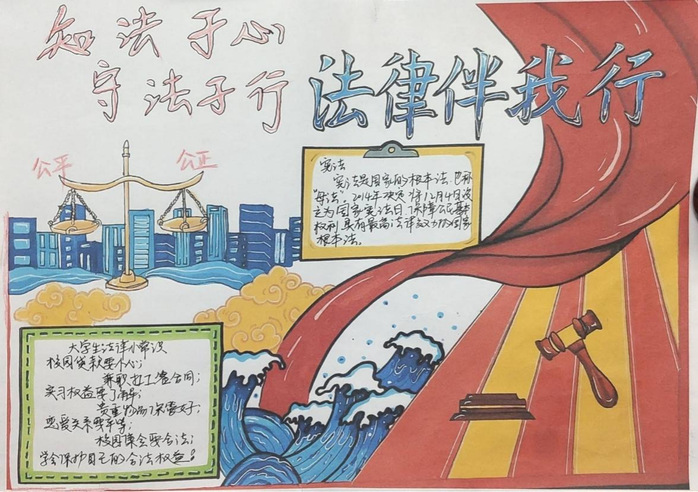 知法于心
守法于行
法律伴我行
公平
公正
宪法
宪法是国家的根本法,也称
"母法"。2014年决定将12月4日设
立为国家宪法日,保障公民基本
权利,具有最高法律效力的国家
根本法。
大学生法律小常识
校园贷款要小心;
兼职打工签合同;
实习权益要了解;
贵重物品保管好;
恋爱关系要平等;
校园集会要合法;
学会保护自己的合法权益!